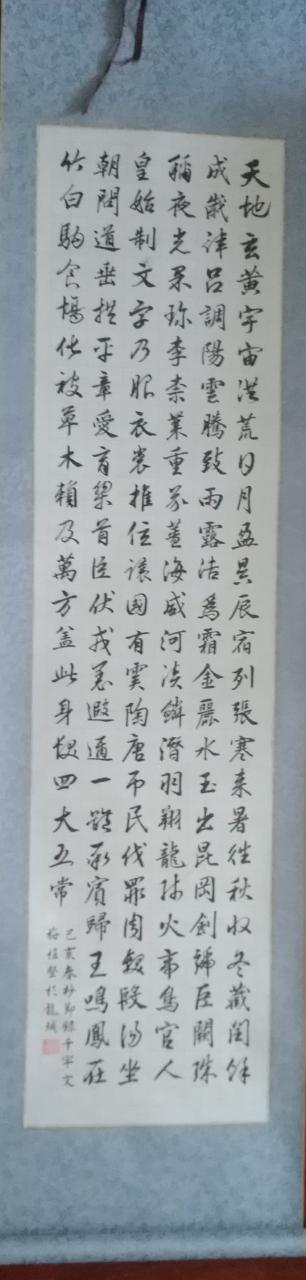 天地玄黃宇宙洪荒日月盈昃辰宿列張寒來暑往秋收冬藏閏餘
成歲律呂調陽雲騰致雨露結為霜金麗水玉出昆岡劍號巨闕珠
稱夜光果珍李柰菜重芥薑海咸河淡鱗潛羽翔龍師火帝鳥官人
皇始制文字乃服衣裳推位讓國有虞陶唐吊民伐罪周發殷湯坐
朝問道垂拱平章愛育黎首臣伏戎羌遐邇一體率賓歸王鳴鳳在
竹白駒食場化被草木賴及萬方蓋此身髮四大五常
己亥春杪節錄千字文
於龍城